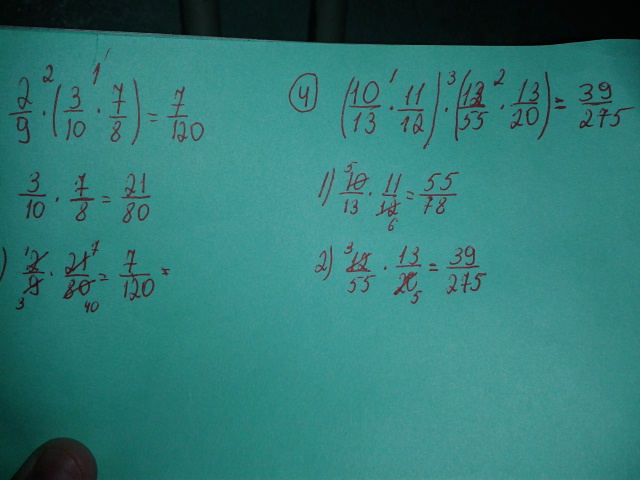 2/9 ·² (3/10 ·¹ 7/8) = 7/120
3/10 · 7/8 = 21/80
) ¹2/9₃ · 21⁷/80₄₀ = 7/120 =
④ (10/13 ·¹ 11/12) ·³ (12/55 ·² 13/20) = 39/275
1) ⁵10/13 · 11/12₆ = 55/78
2) ³12/55 · 13/20₅ = 39/275